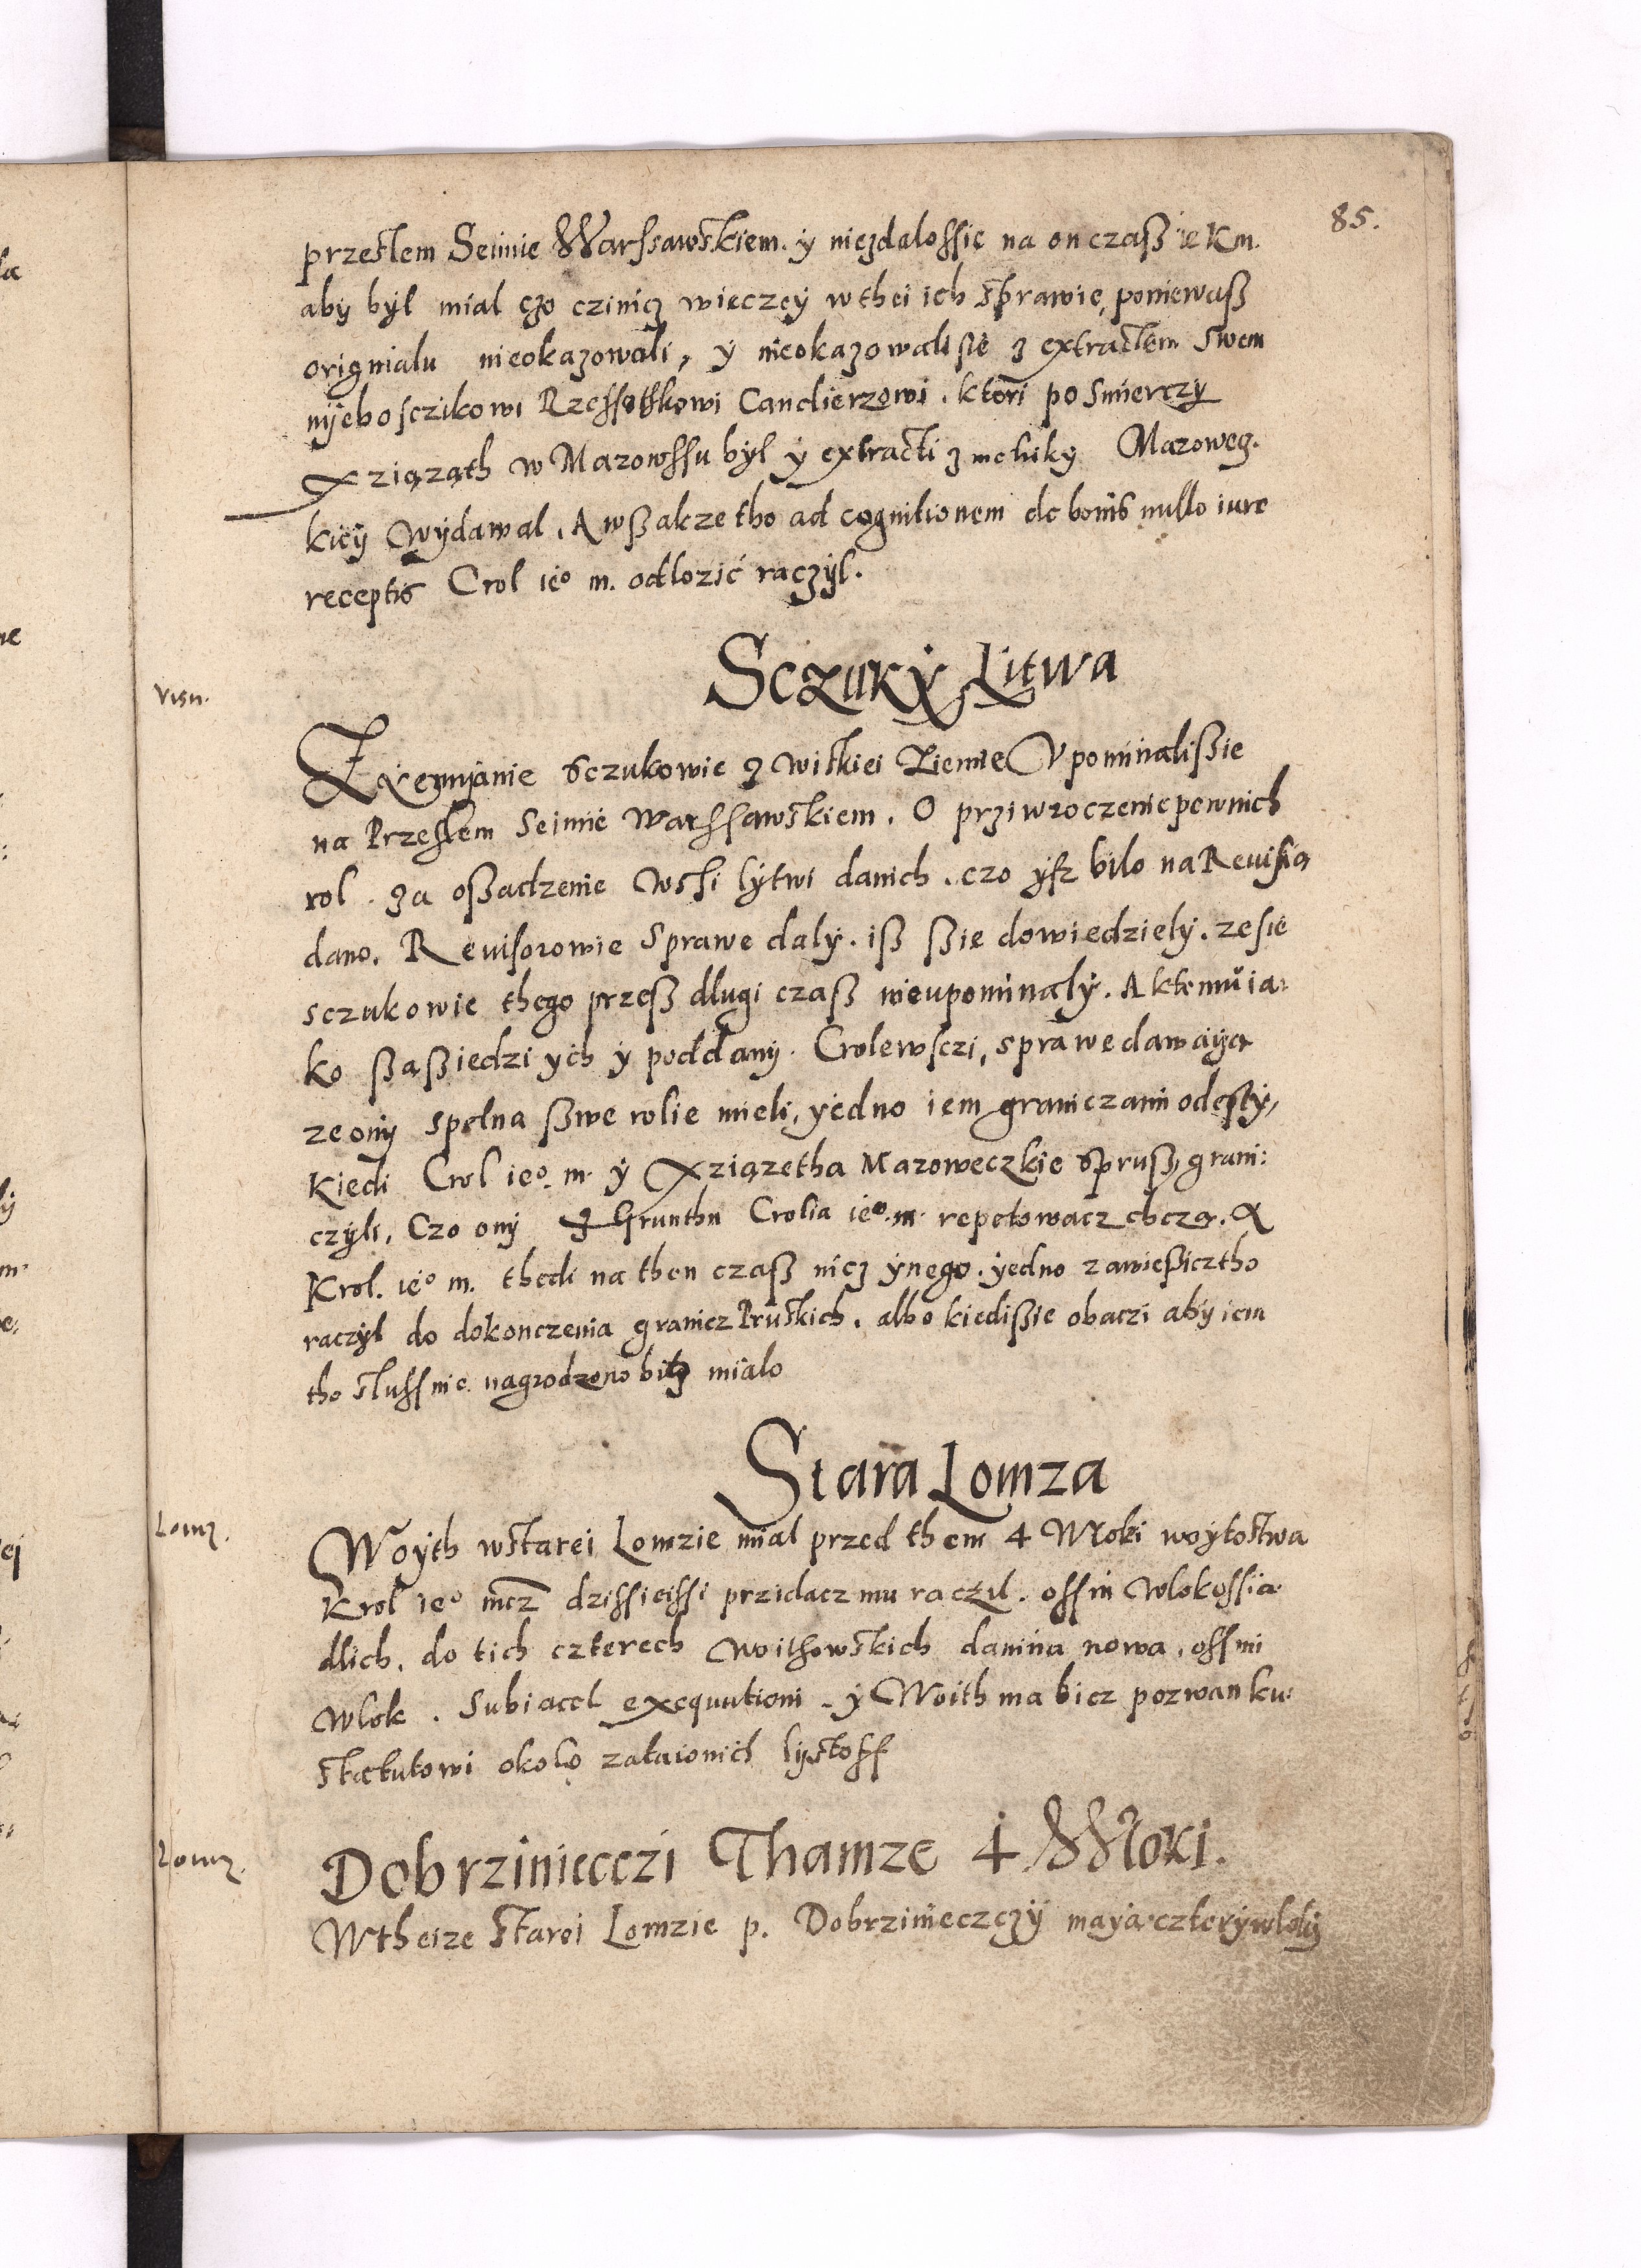 85.
przeslem Seimie Warssawskiem. ÿ niezdalossię na on czaß ie Km.
aby był mial czo czinicz wieczeÿ w thei ich sprawie, poniewaß
originalu nieokazowali, ÿ nieokazowali sie z extractem swem
nÿeboszczikowi Rzessotkowi Canclierzowi. ktori po smierczy
Xziąząth w Mazowssu był ÿ extracti z metriky Mazoweg.
kieÿ Wydawal. A wßakze tho ad cognitionem de bonis nullo iure
receptis Crol ieº m. odlozić raczÿl.
Sczuky Litwa
Visn.
Zyemÿanie Sczukowie z Wiskiei Ziemie Vpominalißie
na Przeslem Seimie Warssawskiem. O prziwroczenie pewnich
rol. za oßadzenie Wssi lÿtwi danich. czo ÿsz bilo na Reuisią
dano. Reuisorowie sprawe dalÿ. iß ßie dowiedzielÿ. ze sie
sczukowie thego przeß dlugi czaß nieupominalÿ. A ktemu ia:
ko ßaßiedzi ych ÿ poddanÿ. Crolewsczi, sprawe dawaÿą
ze onÿ spelna ßwe rolie mieli, yedno iem graniczami odeslÿ,
Kiedi Crol ieº. m. ÿ Xziązetha Mazoweczkie s pruß, grani:
czyli, Czo onÿ z Grunthu Crolia ieº. m. repetowacz chczą. A
Krol. ieº m. thedi na then czaß nicz ÿnego. yedno zawießicz tho
raczÿl do dokonczenia granicz Pruskich. albo kiedißie obaczi abÿ iem
tho slussnie nagrodzono bitz mialo
Stara Lomza
Lomz.
Woyth w starei Lomzie mial przed them 4 Wloki woÿtostwa
Krol ieº mcz dzissieissi przidacz mu raczÿl. ossm Wlok ossia
dlich. do tich czterech Woithowskich danina nowa. ossmi
Wlok. Subiacet exequutioni. ÿ Woith ma bicz pozwan ku
statutowi okolo zataionich lÿstoff
Dobrziniecczi Thamze 4 Wloki.
Lomz.
W theize starei Lomzie p. Dobrzinieczczÿ maÿą czterÿ wlokÿ